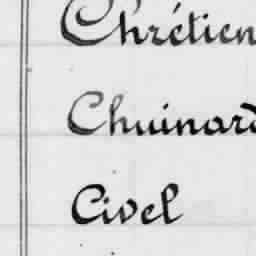 Chrétien
Chuinard
Civel